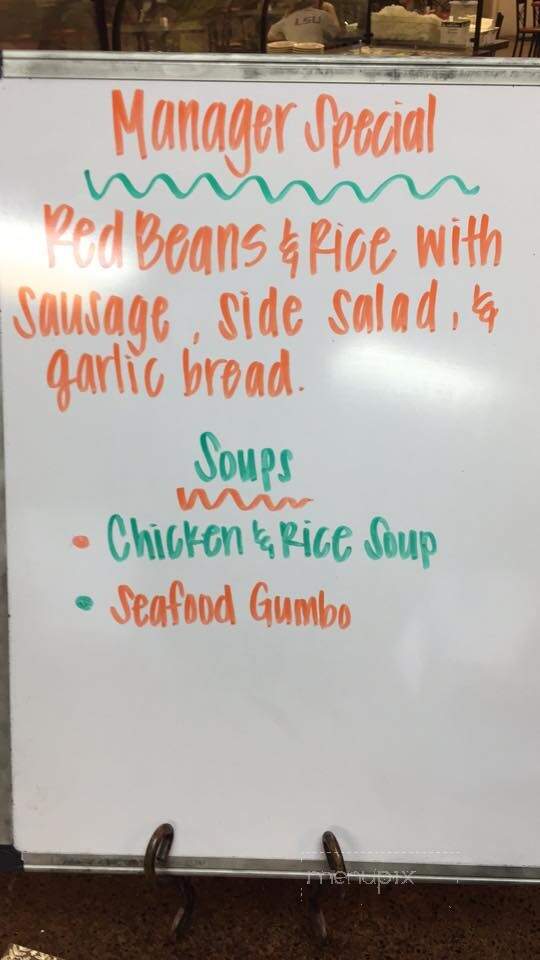 LSU
Manager Special
Red Beans & Rice with
sausage, side salad, &
garlic bread.
Soups
• Chicken & Rice Soup
• Seafood Gumbo
menupix